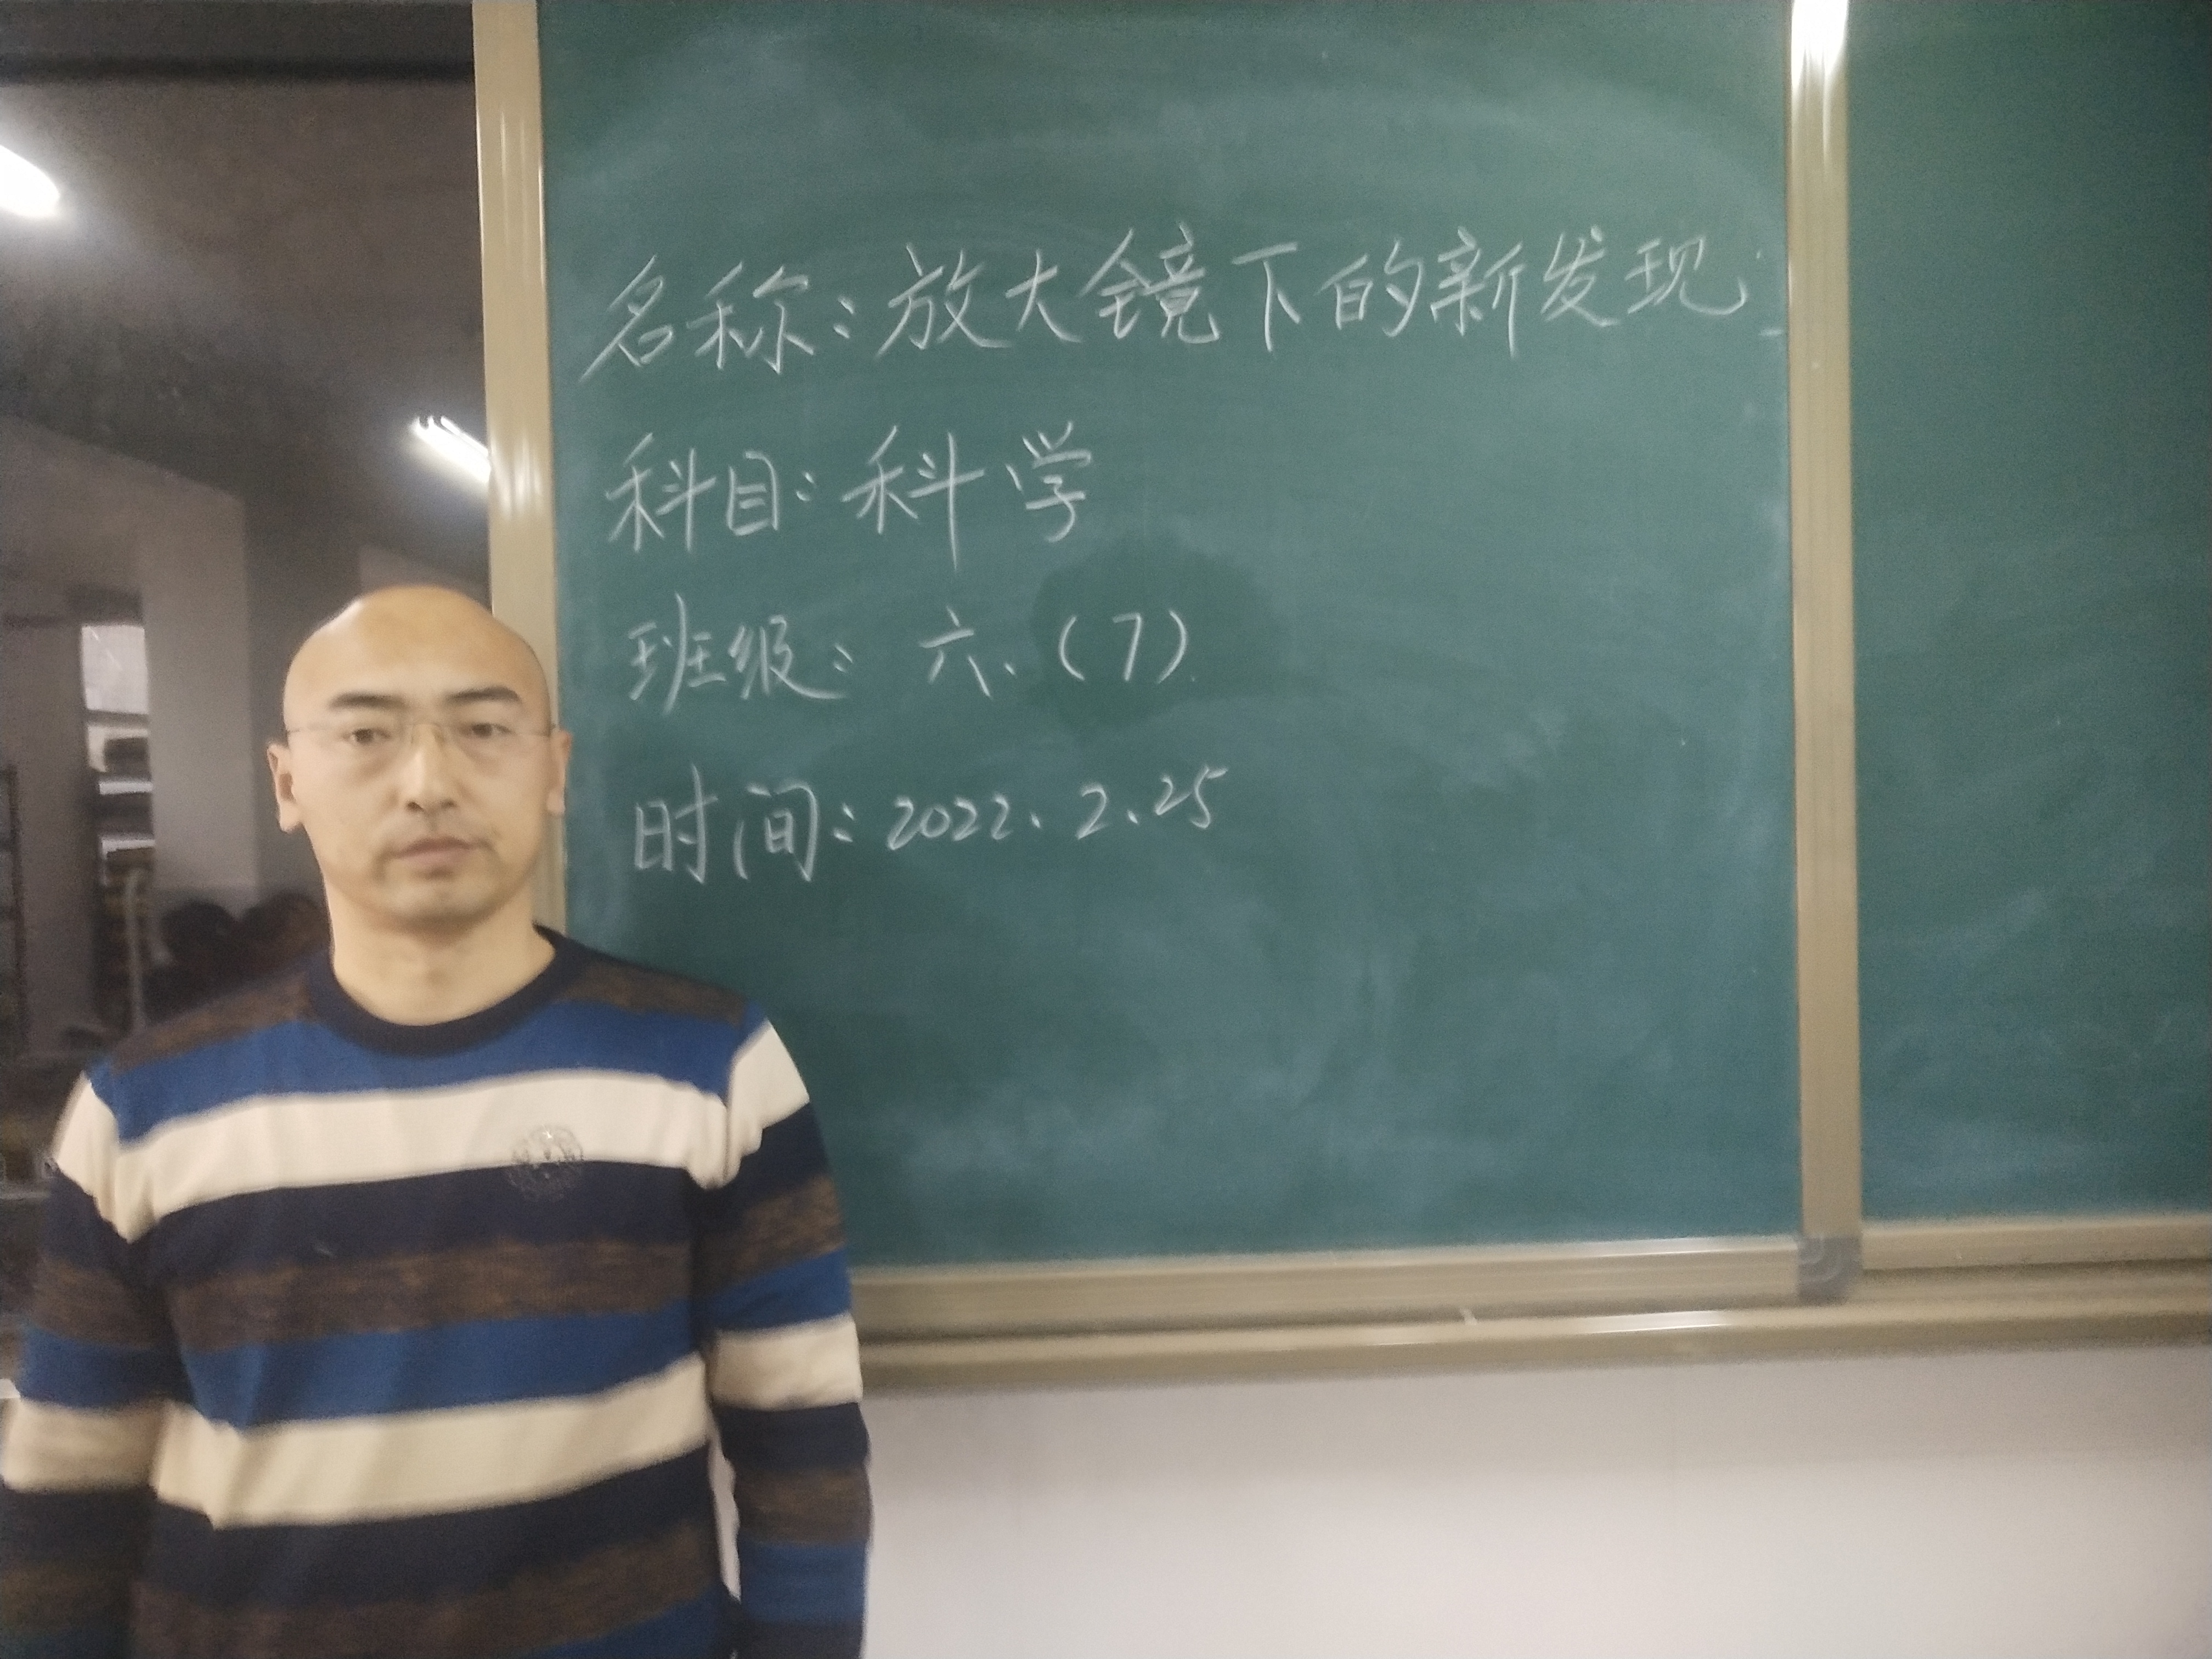 名称：放大镜下的新发现
科目：科学
班级：六、（7）
时间：2022、2、25